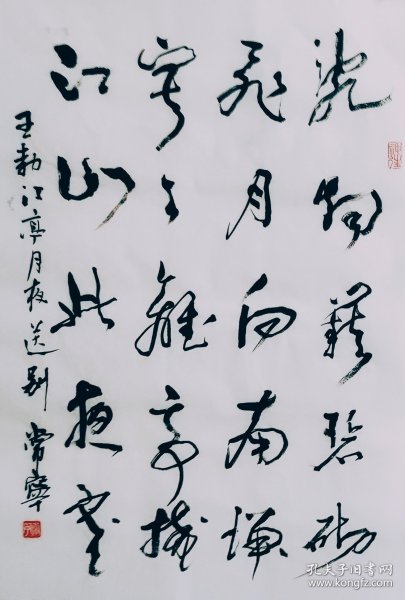 亂烟籠碧砌
飛月向南端
寂〻離亭掩
江山此夜寒
王勃江亭月夜送别 常寧
孔夫子旧书网
www.kongfz.com